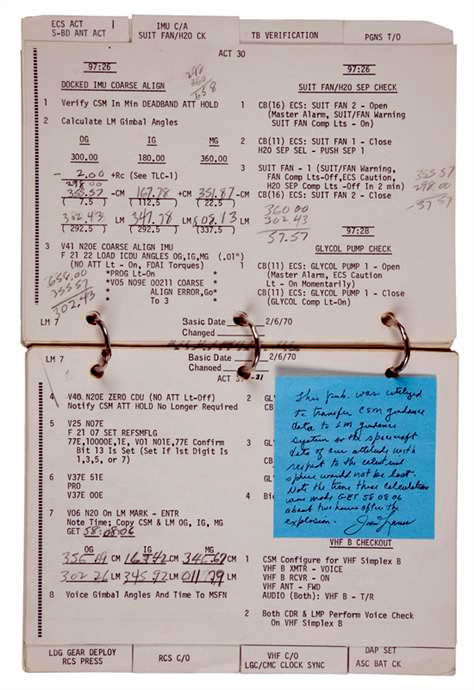 ECS ACT
S-BD ANT ACT
IMU C/A
SUIT FAN/H2O CK
TB VERIFICATION
PGNS T/O
ACT 30
97:26
DOCKED IMU COARSE ALIGN
1 Verify CSM In Min DEADBAND ATT HOLD
2 Calculate LM Gimbal Angles
OG IG MG
300.00 180.00 360.00
- 2.00 +Rc (See TLC-1)
298.00
355.57 -CM 167.78 +CM 351.87 -CM
7.5 112.5 22.5
302.43 LM 347.78 LM 008.13 LM
292.5 292.5 337.5
3 V41 N20E COARSE ALIGN IMU
F 21 22 LOAD ICDU ANGLES OG,IG,MG (.01°)
(NO ATT Lt - On, FDAI Torques)
*PROG Lt-On *
*V05 N09E 00211 COARSE *
* ALIGN ERROR,Go*
* To 3 *
656.00
355.57
302.43
97:26
SUIT FAN/H2O SEP CHECK
1 CB(16) ECS: SUIT FAN 2 - Open
(Master Alarm, SUIT/FAN Warning
SUIT FAN Comp Lts - On)
2 CB(11) ECS: SUIT FAN 1 - Close
H2O SEP SEL - PUSH SEP 1
3 SUIT FAN - 1 (SUIT/FAN Warning,
FAN Comp Lts-Off, ECS Caution,
H2O SEP Comp Lts -Off In 2 min)
355.57
298.00
57.57
360.00
302.43
57.57
97:28
GLYCOL PUMP CHECK
1 CB(11) ECS: GLYCOL PUMP 1 - Open
(Master Alarm, ECS Caution
Lt - On Momentarily)
CB(11) ECS: GLYCOL PUMP 1 - Close
(GLYCOL Comp Lt-On)
LM 7
Basic Date 2/6/70
Changed
LM 7
Basic Date 2/6/70
Changed
4 V40 N20E ZERO CDU (NO ATT Lt-Off)
Notify CSM ATT HOLD No Longer Required
5 V25 N07E
F 21 07 SET REFSMFLG
77E,10000E,1E, V01 N01E,77E Confirm
Bit 13 Is Set (Set If 1st Digit Is
1,3,5, or 7)
6 V37E 51E
PRO
V37E 00E
7 V06 N20 On LM MARK - ENTR
Note Time; Copy CSM & LM OG, IG, MG
GET 58:08:06
OG IG MG
CM CM CM
302.26 LM 345.92 LM 011.79 LM
8 Voice Gimbal Angles And Time To MSFN
This pub. was utilized
to transfer CSM guidance
data to LM guidance
system so the spacecraft
data of our attitude with
respect to the celestial
sphere would not be lost.
Note the time these calculations
were made GET 58 08 06
about two hours after the
explosion.
VHF B CHECKOUT
1 CSM Configure for VHF Simplex B
VHF B XMTR - VOICE
VHF B RCVR - ON
VHF ANT - FWD
AUDIO (Both): VHF B - T/R
2 Both CDR & LMP Perform Voice Check
On VHF Simplex B
LDG GEAR DEPLOY
RCS PRESS
RCS C/O
VHF C/O
LGC/CMC CLOCK SYNC
DAP SET
ASC BAT CK